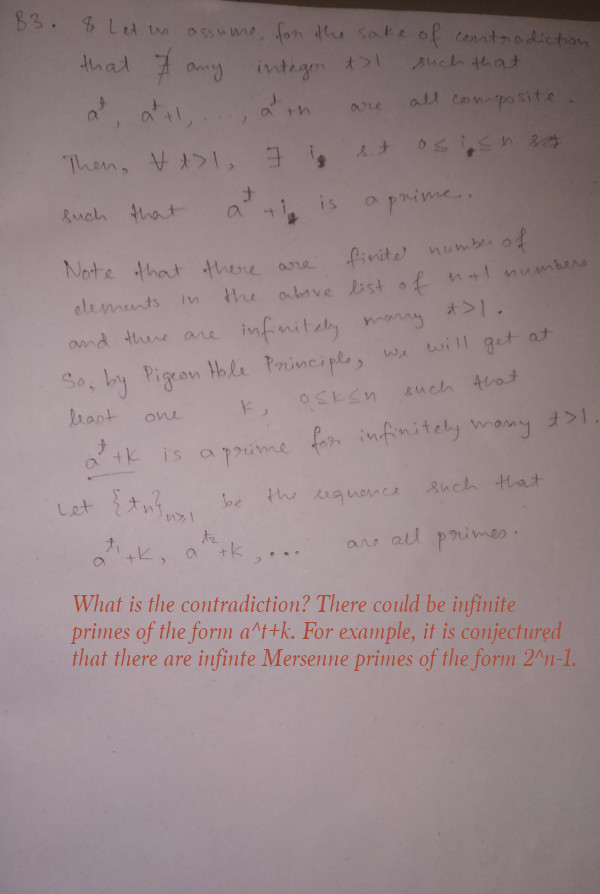 B3. Let us assume, for the sake of contradiction
that ∄ any integer t>1 such that
a^t, a^t+1, ..., a^t+n are all composite.
Then, ∀ t>1, ∃ i, s.t 0≤i≤n
such that a^t+i is a prime.
Note that there are finite number of
elements in the above list of n+1 numbers
and there are infinitely many t>1.
So, by Pigeon Hole Principle, we will get at
least one k, 0≤k≤n such that
a^t+k is a prime for infinitely many t>1.
Let {t_n}_{n≥1} be the sequence such that
a^{t_1}+k, a^{t_2}+k, ... are all primes.
What is the contradiction? There could be infinite
primes of the form a^t+k. For example, it is conjectured
that there are infinte Mersenne primes of the form 2^n-1.